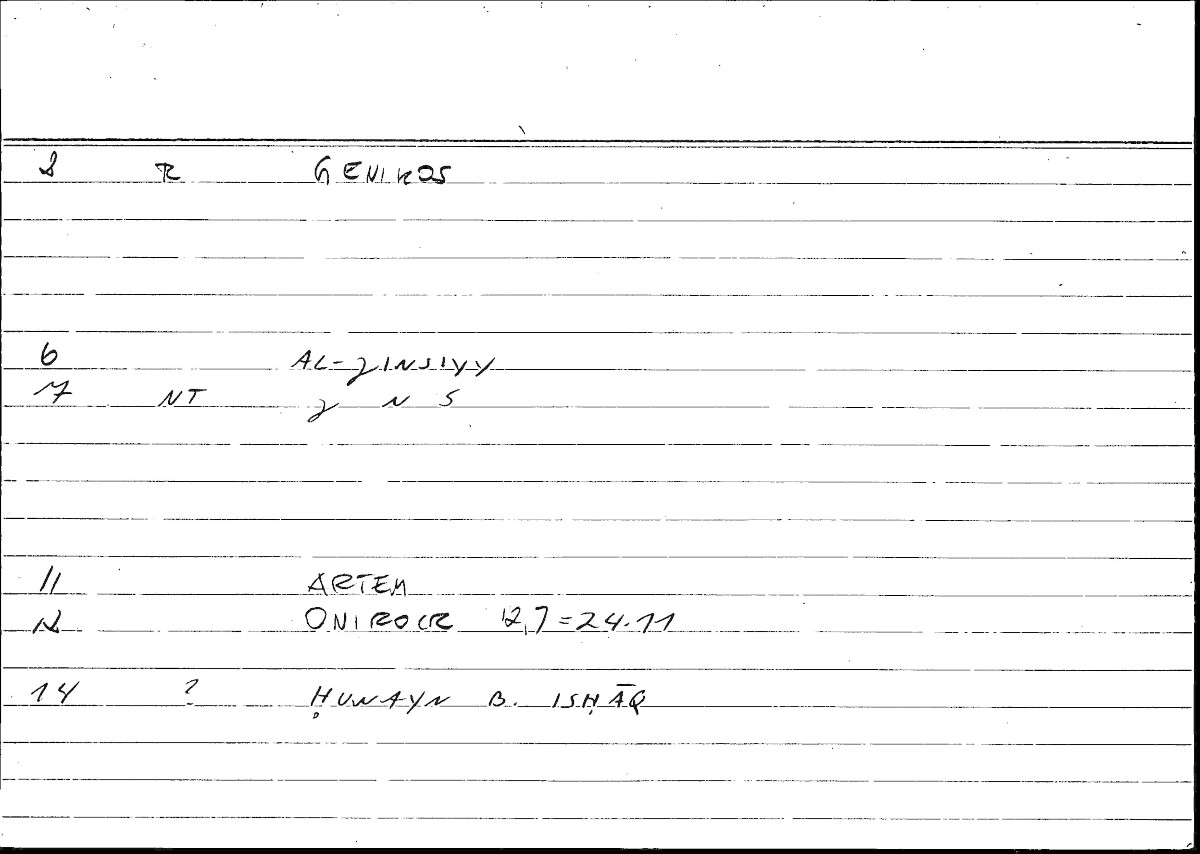 2 R GENIKOS
6 AL-ǧINSIYY
7 NT ǧ N S
11 ARTEM
12 ONIROCR 12,7=24.11
14 ? ḤUNAYN B. ISḤĀQ